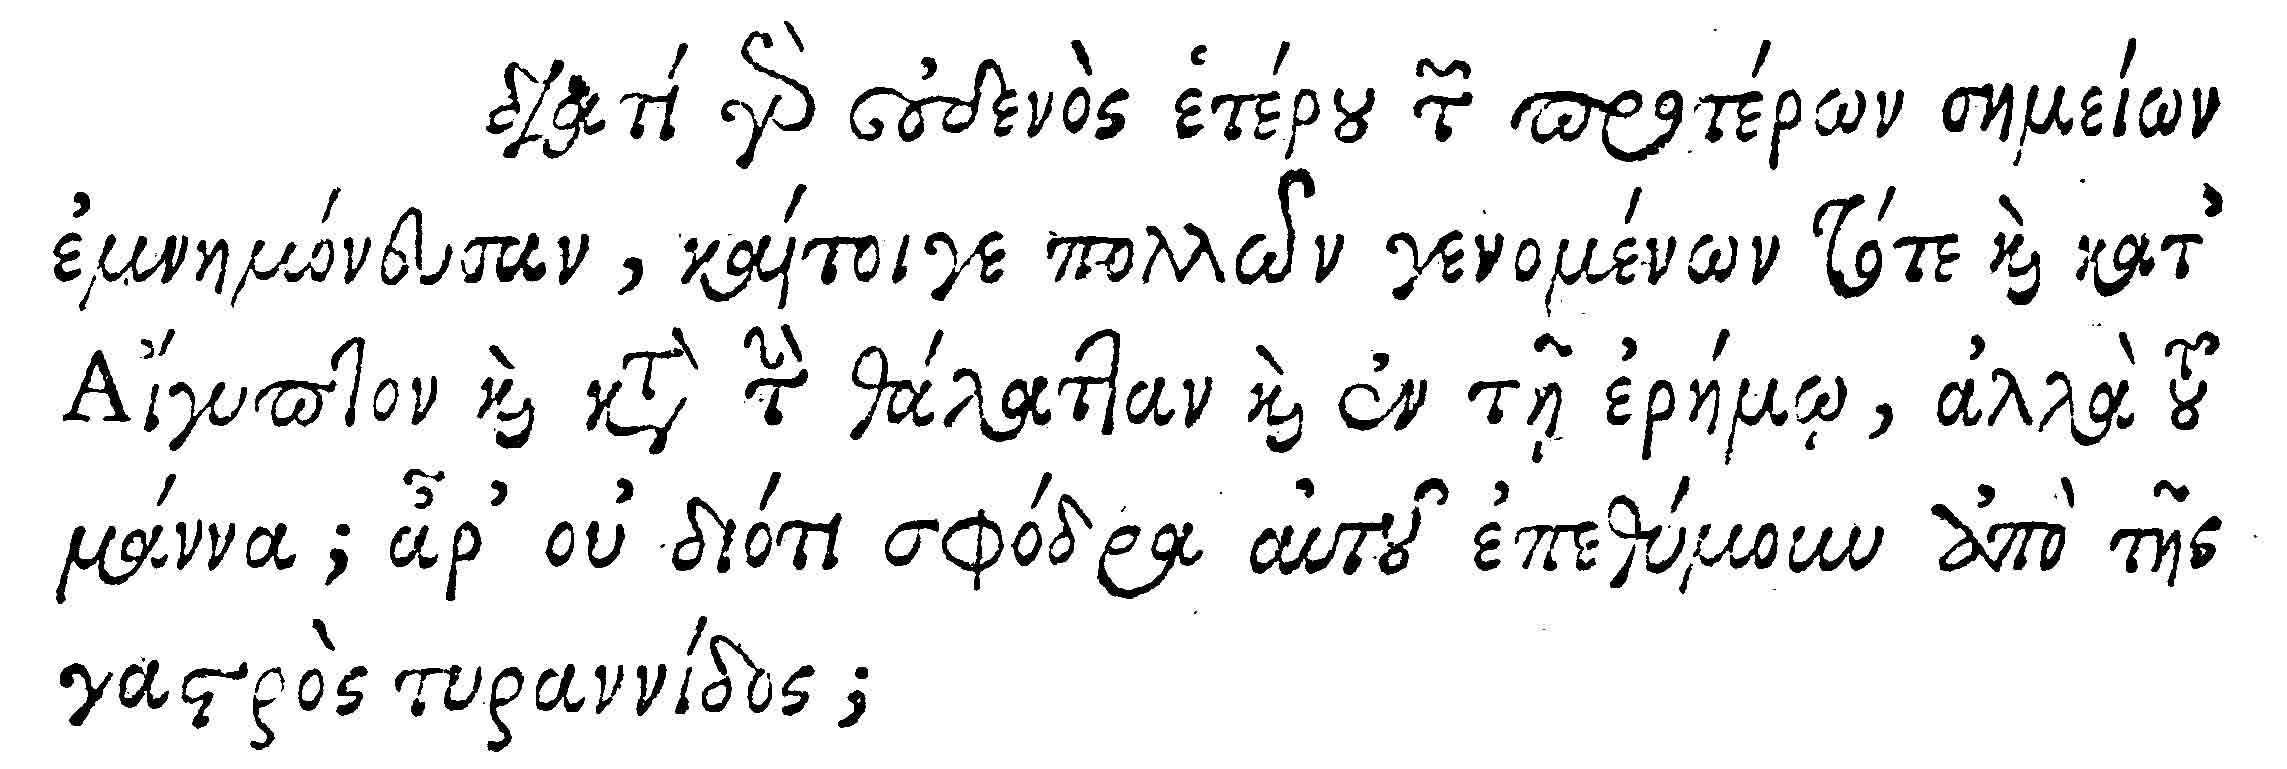 διατί γὰρ οὐδενὸς ἑτέρου τῶν προτέρων σημείων
ἐμνημόνευσαν, καίτοιγε πολλῶν γενομένων τότε καὶ κατ’
Αἴγυπτον καὶ κατὰ τὴν θάλατταν καὶ ἐν τῇ ἐρήμῳ, ἀλλὰ τοῦ
μάννα; ἆρ’ οὐ διότι σφόδρα αὐτοῦ ἐπεθύμουν ἀπὸ τῆς
γαστρὸς τυραννίδος;